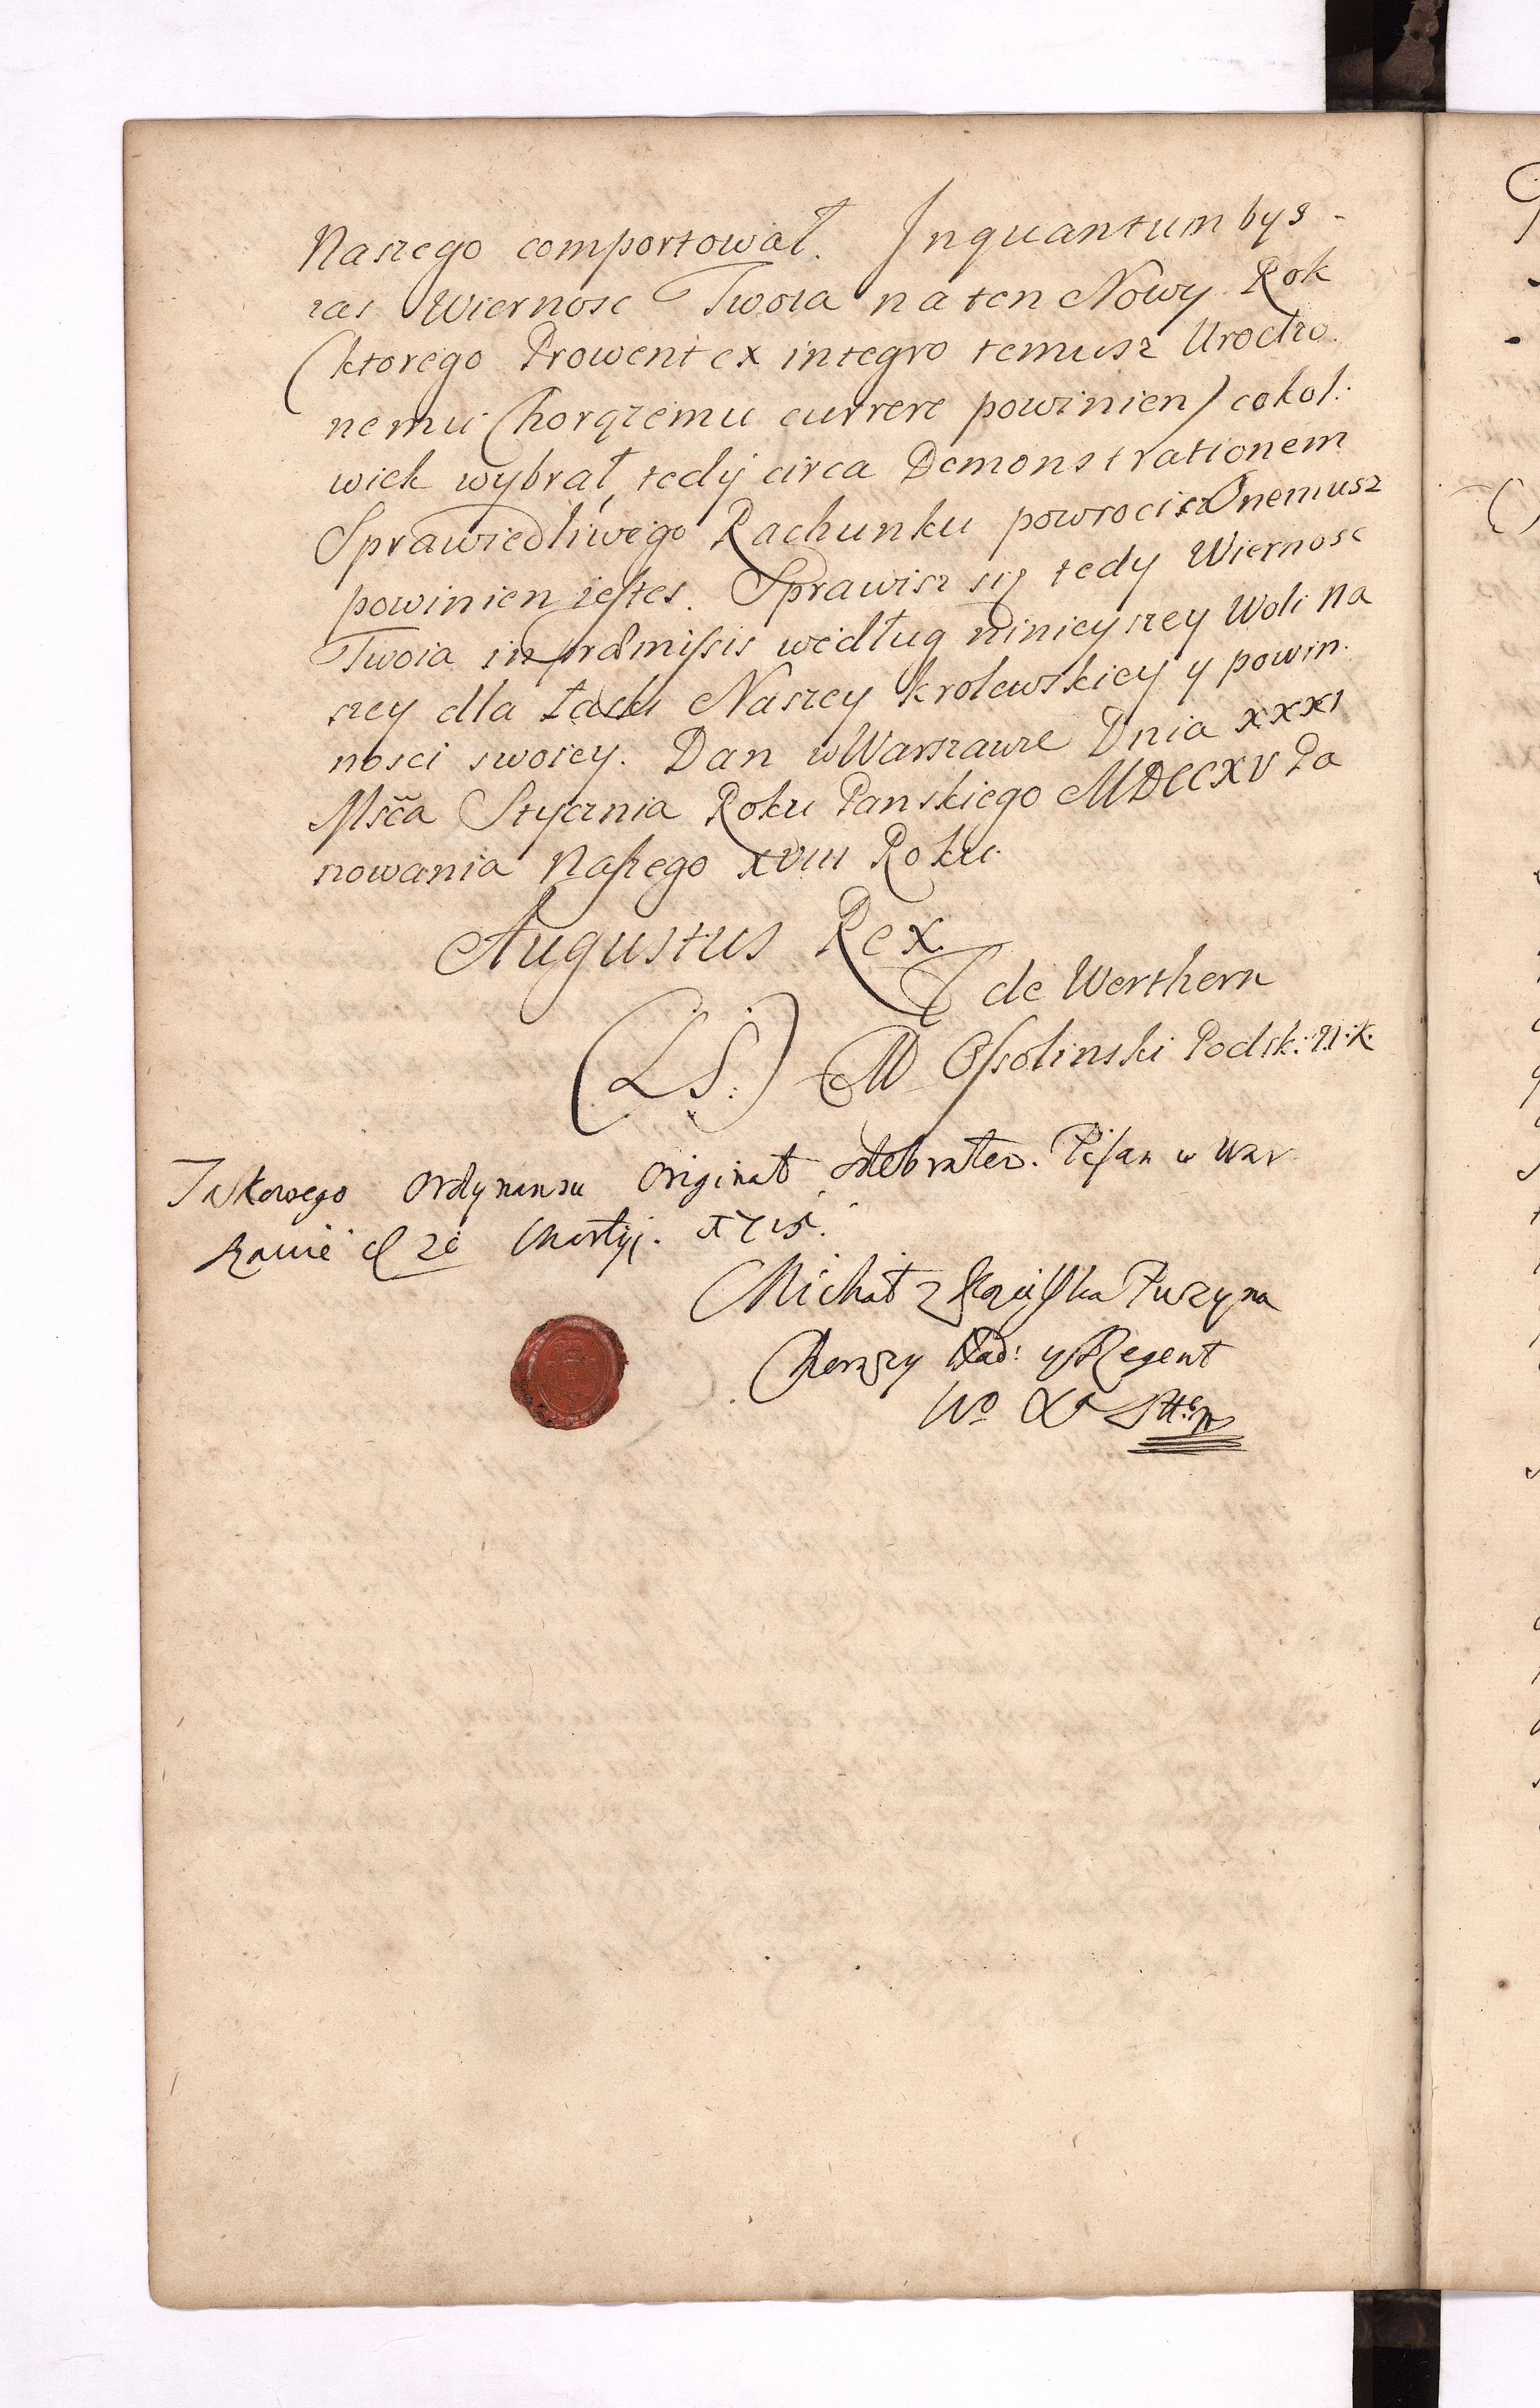 Naszego comportował. Inquantum bys-
zas Wiernosc Twoia na ten Nowy Rok
(ktorego Prowent ex integro temusz Urodzo.
nemu Chorązemu currere powinien) cokol:
wiek wybrał, tedy circa Demonstrationem
Sprawiedliwego Rachunku powrocisz Onemusz
powinien iestes. Sprawisz się tedy Wiernosc
Twoia in præmissis według ninieyszey Woli Na
szey dla łaski Naszey krolewskiey y powin.
nosci swoiey. Dan w Warszawie Dnia XXXI
Msca Stycznia Roku Panskiego MDCCXV Pa
nowania Naszego XVIII Roku.
Augustus Rex
de Werthern
(LS:) M Ossolinski Podsk: N: K.
Takowego Ordynansu Originał odebrałem. Pisan w War
szawie d 20 Martij. 1715.
Michał z Puzyna
Chorązy Nad: y Regent